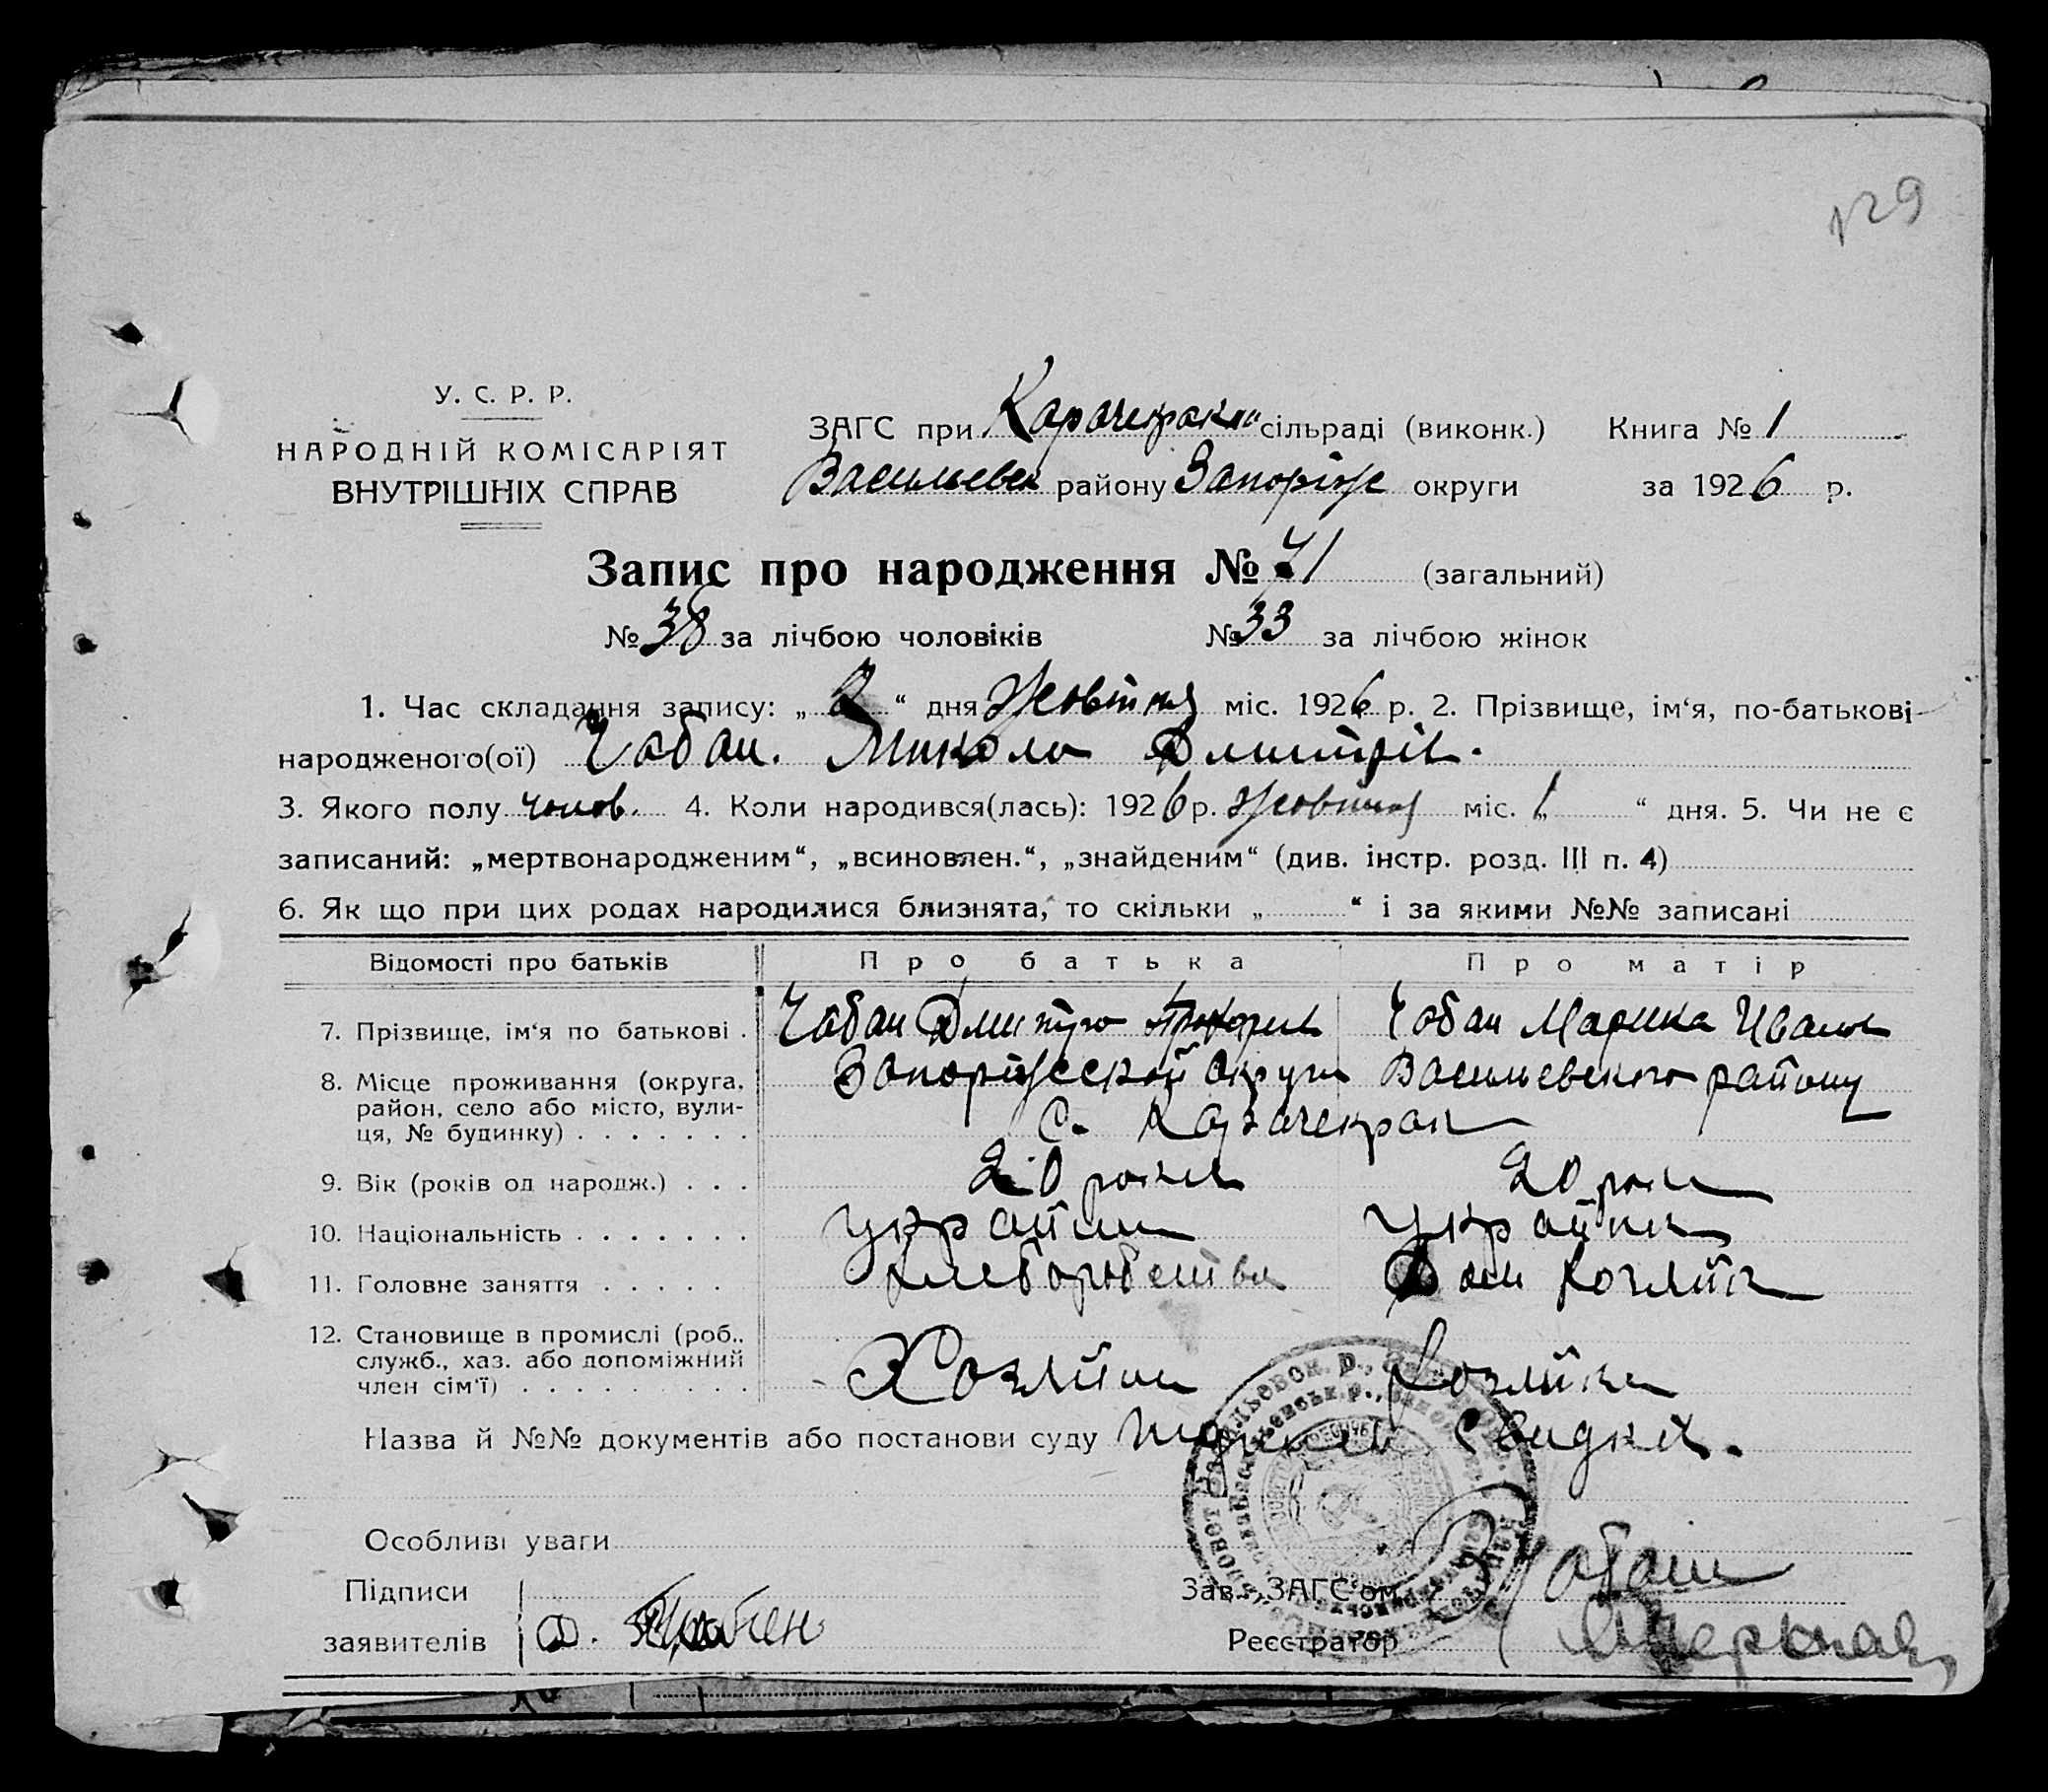 129
У. С. Р. Р.
НАРОДНІЙ КОМІСАРІЯТ
ВНУТРІШНІХ СПРАВ
ЗАГС при Карачекракск сільраді (виконк.) Книга № 1
Васильевск району Запоріж округи за 1926 р.
Запис про народження № 71 (загальний)
№ 38 за лічбою чоловіків № 33 за лічбою жінок
1. Час складання запису: „2“ дня Жовтня міс. 1926 р. 2. Прізвище, ім‘я, по-батькові
народженого(ої) Чабан. Микола Дмитрів.
3. Якого полу чолов. 4. Коли народився(лась): 1926 р. Жовтня міс. „1“ дня. 5. Чи не є
записаний: „мертвонародженим“, „всиновлен.“, „знайденим“ (див. інстр. розд. III п. 4)
6. Як що при цих родах народилися близнята, то скільки „ “ і за якими №№ записані
Відомості про батьків Про батька Про матір
7. Прізвище, ім‘я по батькові . Чабан Дмитро Чабан Марика Иван
8. Місце проживання (округа, Запоріжеской округи Васильевского району
район, село або місто, вули-
ця, № будинку) . . . . . . . с. Карачекрак
9. Вік (років од народж.) . . . 20 роки 20 роки
10. Національність . . . . . . . україн україн
11. Головне заняття . . . . . Хлеборобства Дом Хозяйка
12. Становище в промислі (роб.,
служб., хаз. або допоміжний Хозяйин Хозяйка
член сім‘ї) . . . . . . . . . .
Назва й №№ документів або постанови суду Свидків.
Особливі уваги
Підписи Зав. „ЗАГС‘ом Чабан
заявителів Д. Реєстратор